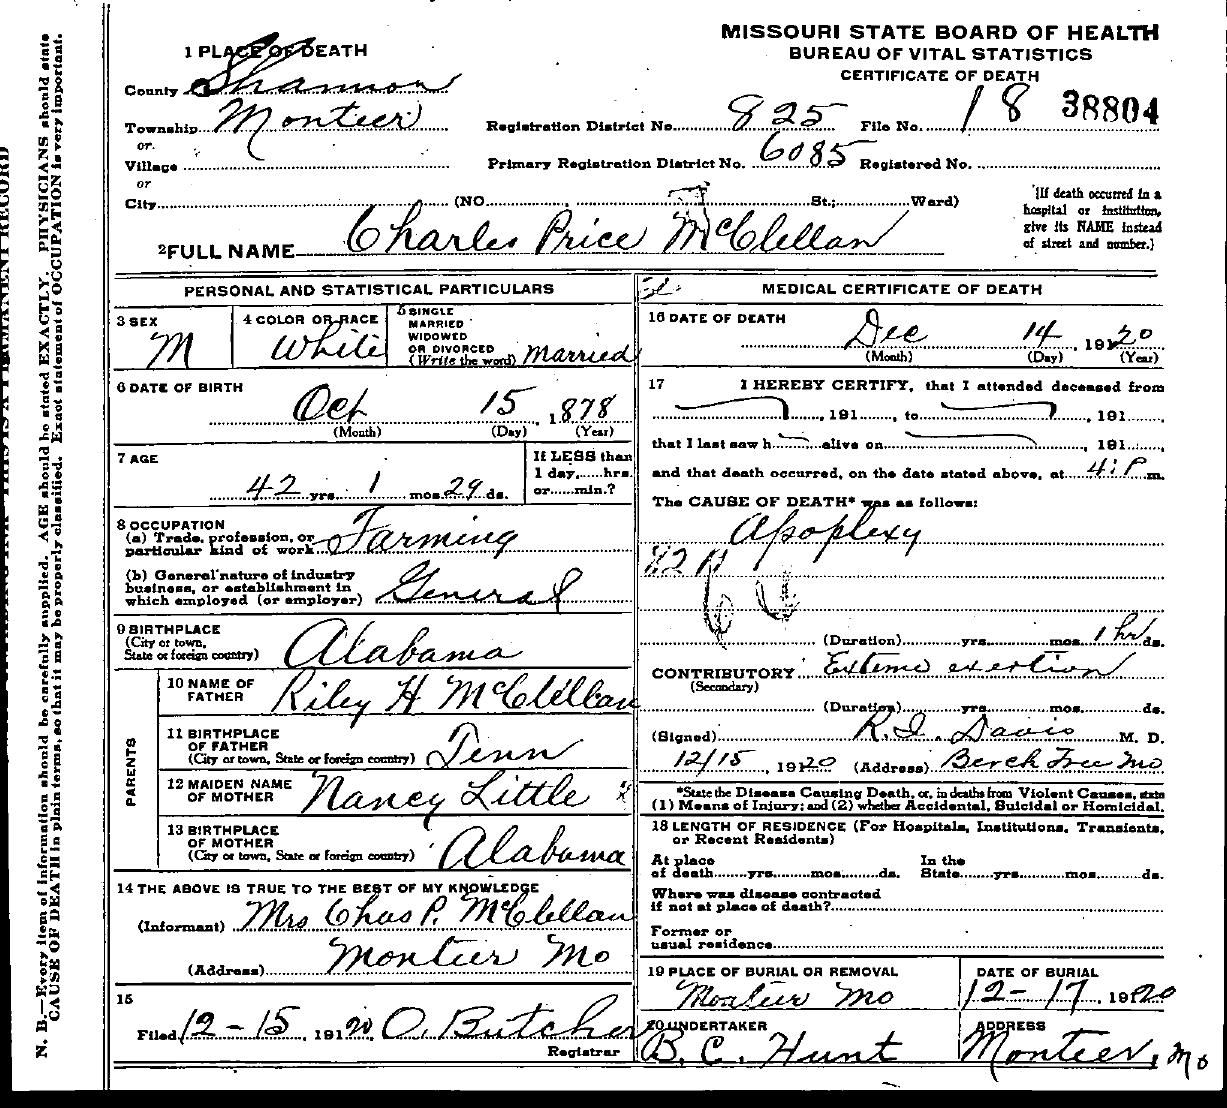 MISSOURI STATE BOARD OF HEALTH
BUREAU OF VITAL STATISTICS
CERTIFICATE OF DEATH
1 PLACE OF DEATH
County Shannon
Township Montier
or
Village
or
City (NO. St.; Ward)
Registration District No. 825 File No. 18 38804
Primary Registration District No. 6085 Registered No.
[If death occurred in a
hospital or institution,
give its NAME instead
of street and number.]
2 FULL NAME Charles Price McClellan
PERSONAL AND STATISTICAL PARTICULARS
3 SEX
M
4 COLOR OR RACE
White
5 SINGLE
MARRIED
WIDOWED
OR DIVORCED
(Write the word) Married
6 DATE OF BIRTH
Oct 15, 1878
(Month) (Day) (Year)
7 AGE
42 yrs. 1 mos. 29 ds.
If LESS than
1 day,......hrs.
or......min.?
8 OCCUPATION
(a) Trade, profession, or
particular kind of work Farming
(b) General nature of industry
business, or establishment in
which employed (or employer) General
9 BIRTHPLACE
(City or town,
State or foreign country) Alabama
PARENTS
10 NAME OF
FATHER Riley H McClellan
11 BIRTHPLACE
OF FATHER
(City or town, State or foreign country) Tenn
12 MAIDEN NAME
OF MOTHER Nancy Little
13 BIRTHPLACE
OF MOTHER
(City or town, State or foreign country) Alabama
14 THE ABOVE IS TRUE TO THE BEST OF MY KNOWLEDGE
(Informant) Mrs Chas P. McClellan
(Address) Montier Mo
15
Filed 12-15, 1920 O. Butcher
Registrar
MEDICAL CERTIFICATE OF DEATH
16 DATE OF DEATH
Dec 14, 1920
(Month) (Day) (Year)
17 I HEREBY CERTIFY, that I attended deceased from
, 191, to , 191
that I last saw h alive on , 191
and that death occurred, on the date stated above, at 4:P m.
The CAUSE OF DEATH* was as follows:
Apoplexy
64
(Duration) yrs. mos. 1 hr ds.
CONTRIBUTORY Exteme exertion
(Secondary)
(Duration) yrs. mos. ds.
(Signed) R.I. Davis M. D.
12/15, 1920 (Address) Berch Tree Mo
*State the Disease Causing Death, or, in deaths from Violent Causes, state
(1) Means of Injury; and (2) whether Accidental, Suicidal or Homicidal.
18 LENGTH OF RESIDENCE (For Hospitals, Institutions, Transients,
or Recent Residents)
At place In the
of death yrs. mos. ds. State yrs. mos. ds.
Where was disease contracted
if not at place of death?
Former or
usual residence
19 PLACE OF BURIAL OR REMOVAL
Montier Mo
DATE OF BURIAL
12-17, 1920
20 UNDERTAKER
B. C. Hunt
ADDRESS
Montier, Mo
N. B.—Every item of information should be carefully supplied. AGE should be stated EXACTLY. PHYSICIANS should state
CAUSE OF DEATH in plain terms, so that it may be properly classified. Exact statement of OCCUPATION is very important.